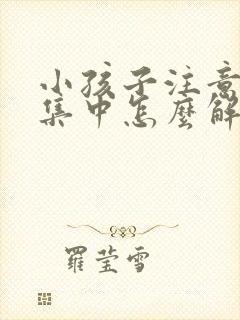 小孩子注意
集中怎麼解
羅瑩雪